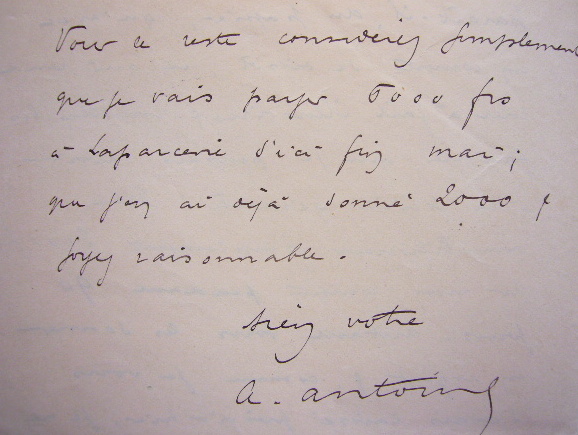 Pour ce reste considérez simplement
que je vais payer 6000 frs
à Laparcerie d'ici fin mai ;
que j'en ai déjà donné 2000 ;
soyez raisonnable.
bien votre
A. Antoine